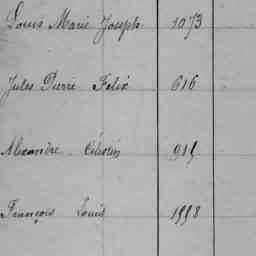 Louis Marie Joseph 1073
Jules Pierre Félix 616
Alexandre Célestin
François Louis